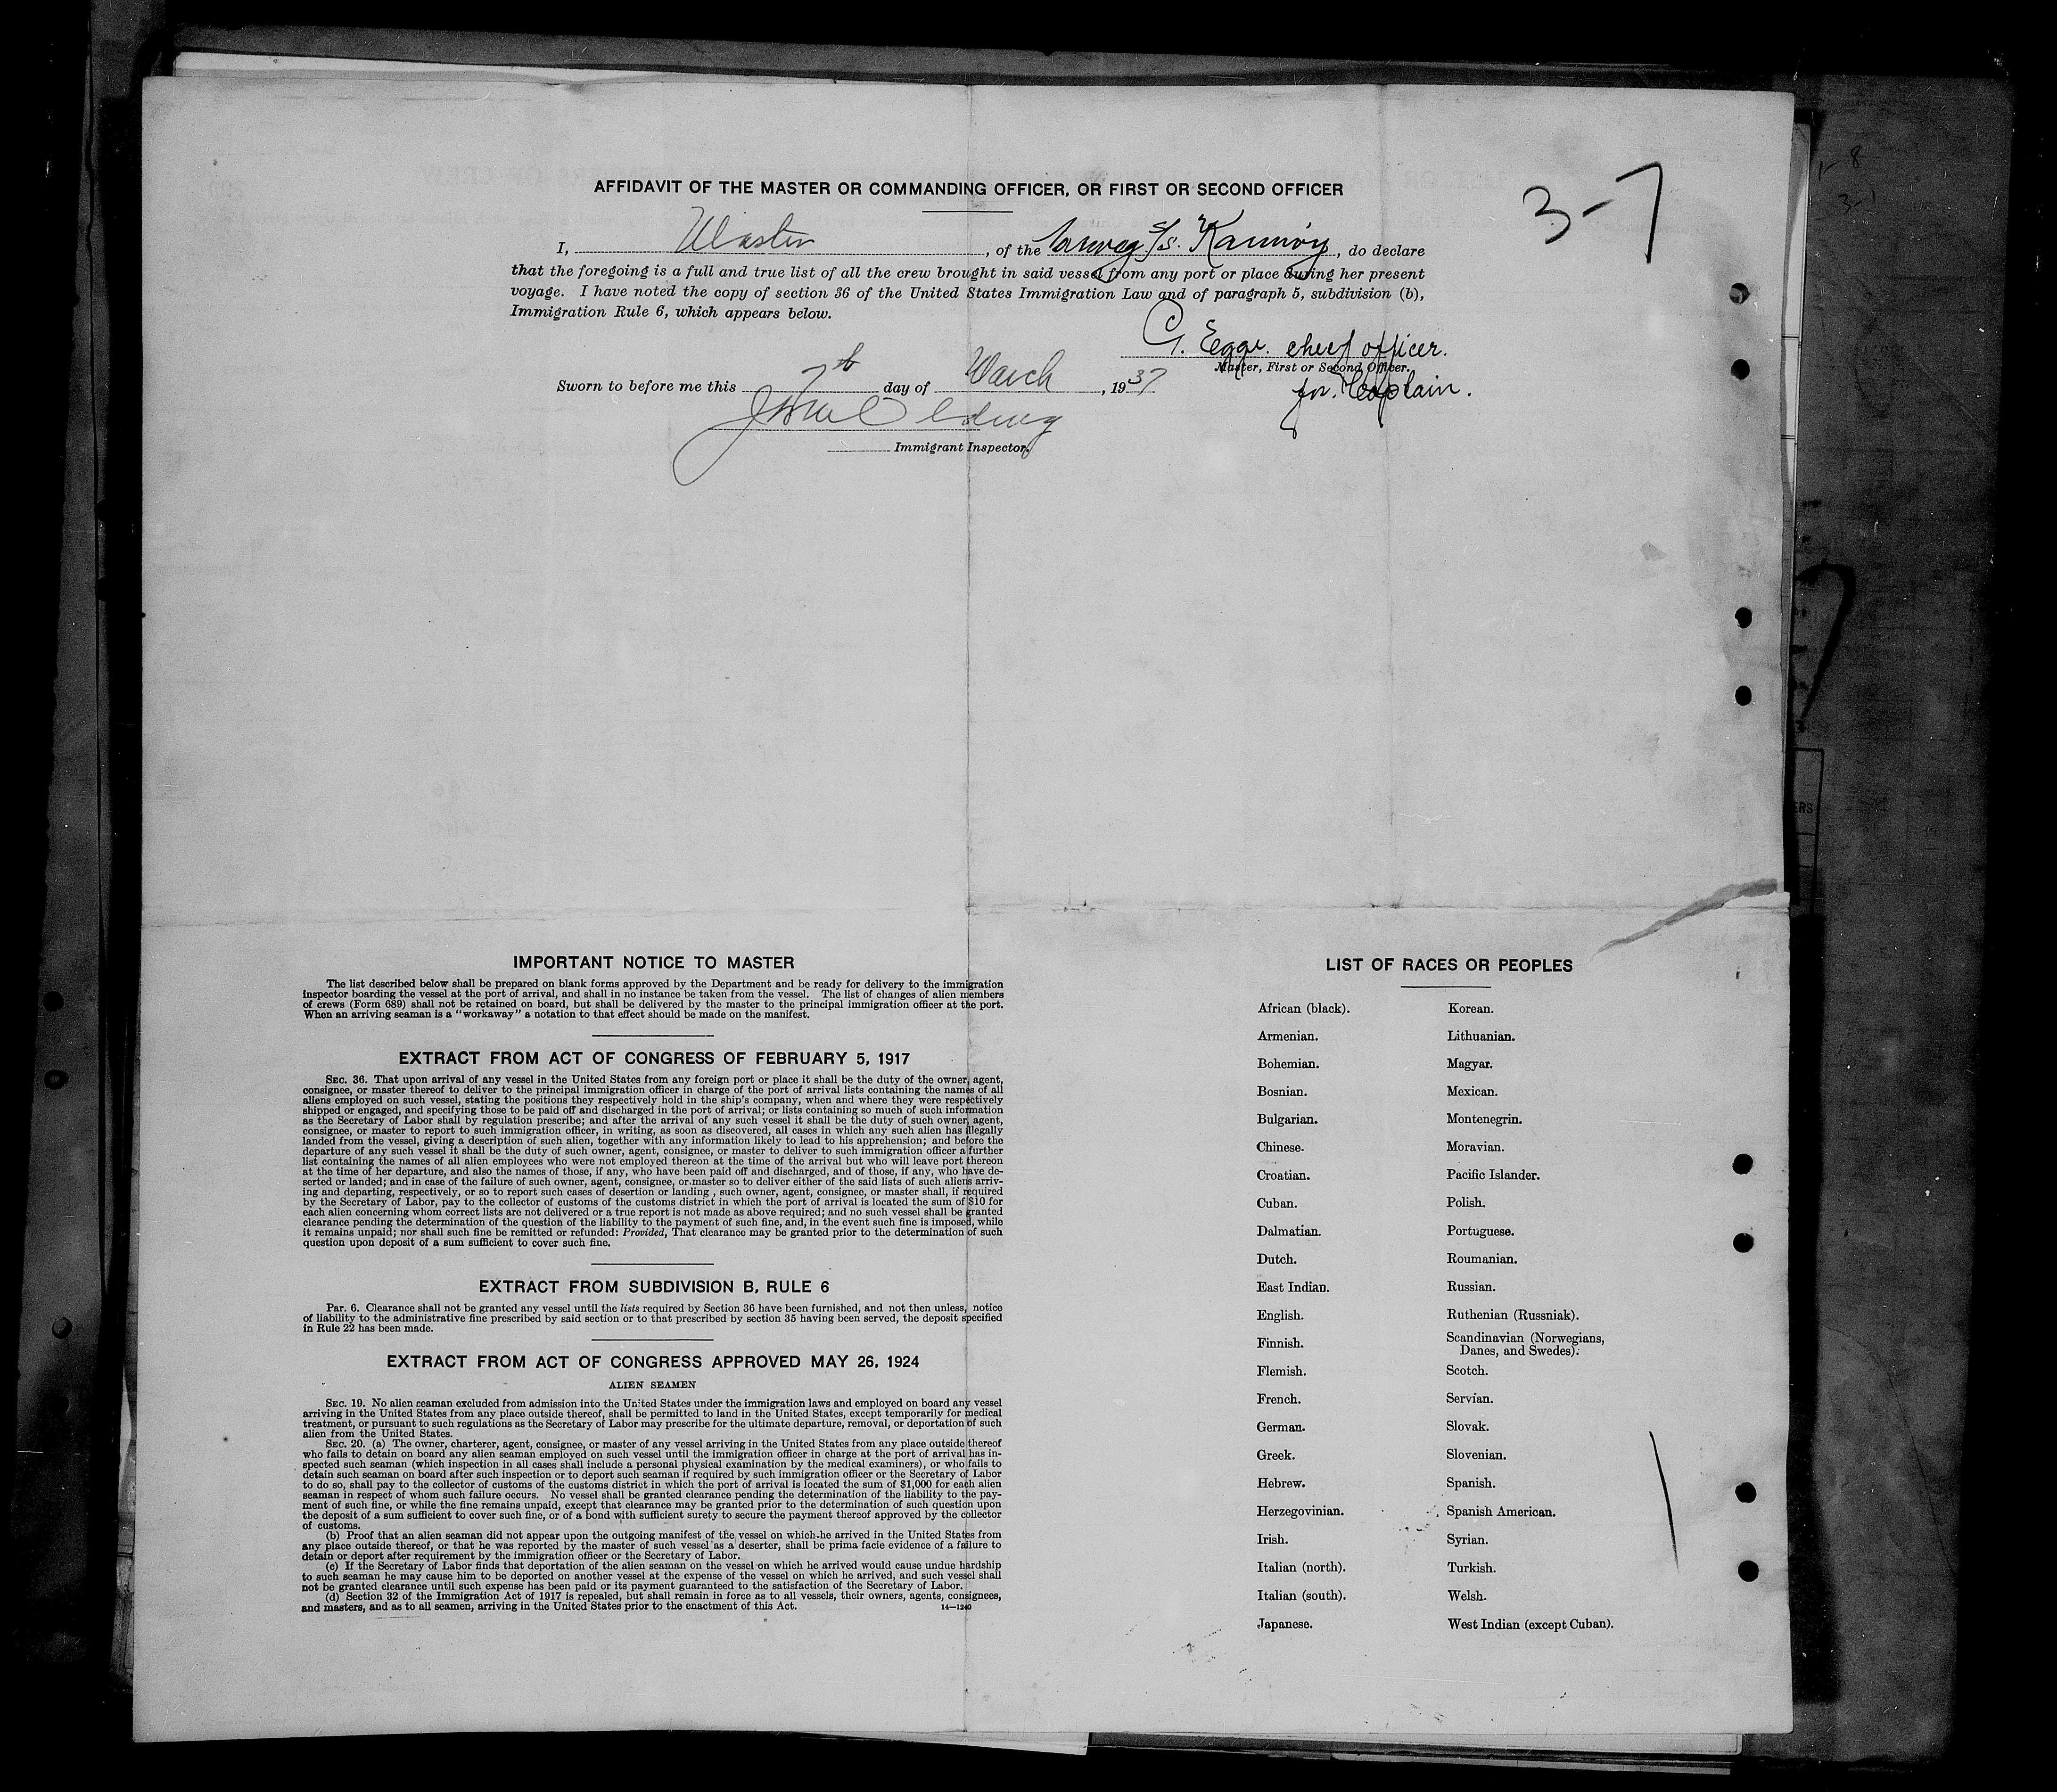 3-7
AFFIDAVIT OF THE MASTER OR COMMANDING OFFICER, OR FIRST OR SECOND OFFICER
I, Master, of the Norweg. S/S. Karmöy, do declare
that the foregoing is a full and true list of all the crew brought in said vessel from any port or place during her present
voyage. I have noted the copy of section 36 of the United States Immigration Law and of paragraph 5, subdivision (b),
Immigration Rule 6, which appears below.
G. Egge. chief officer.
Master, First or Second Officer.
for Captain.
Sworn to before me this 7th day of March, 1937
Immigrant Inspector.
IMPORTANT NOTICE TO MASTER
The list described below shall be prepared on blank forms approved by the Department and be ready for delivery to the immigration
inspector boarding the vessel at the port of arrival, and shall in no instance be taken from the vessel. The list of changes of alien members
of crews (Form 689) shall not be retained on board, but shall be delivered by the master to the principal immigration officer at the port.
When an arriving seaman is a "workaway" a notation to that effect should be made on the manifest.
EXTRACT FROM ACT OF CONGRESS OF FEBRUARY 5, 1917
SEC. 36. That upon arrival of any vessel in the United States from any foreign port or place it shall be the duty of the owner, agent,
consignee, or master thereof to deliver to the principal immigration officer in charge of the port of arrival lists containing the names of all
aliens employed on such vessel, stating the positions they respectively hold in the ship's company, when and where they were respectively
shipped or engaged, and specifying those to be paid off and discharged in the port of arrival; or lists containing so much of such information
as the Secretary of Labor shall by regulation prescribe; and after the arrival of any such vessel it shall be the duty of such owner, agent,
consignee, or master to report to such immigration officer, in writing, as soon as discovered, all cases in which any such alien has illegally
landed from the vessel, giving a description of such alien, together with any information likely to lead to his apprehension; and before the
departure of any such vessel it shall be the duty of such owner, agent, consignee, or master to deliver to such immigration officer a further
list containing the names of all alien employees who were not employed thereon at the time of the arrival but who will leave port thereon
at the time of her departure, and also the names of those, if any, who have been paid off and discharged, and of those, if any, who have de-
serted or landed; and in case of the failure of such owner, agent, consignee, or master so to deliver either of the said lists of such aliens arriv-
ing and departing, respectively, or so to report such cases of desertion or landing , such owner, agent, consignee, or master shall, if required
by the Secretary of Labor, pay to the collector of customs of the customs district in which the port of arrival is located the sum of $10 for
each alien concerning whom correct lists are not delivered or a true report is not made as above required; and no such vessel shall be granted
clearance pending the determination of the question of the liability to the payment of such fine, and, in the event such fine is imposed, while
it remains unpaid; nor shall such fine be remitted or refunded: Provided, That clearance may be granted prior to the determination of such
question upon deposit of a sum sufficient to cover such fine.
EXTRACT FROM SUBDIVISION B, RULE 6
Par. 6. Clearance shall not be granted any vessel until the lists required by Section 36 have been furnished, and not then unless, notice
of liability to the administrative fine prescribed by said section or to that prescribed by section 35 having been served, the deposit specified
in Rule 22 has been made.
EXTRACT FROM ACT OF CONGRESS APPROVED MAY 26, 1924
ALIEN SEAMEN
SEC. 19. No alien seaman excluded from admission into the United States under the immigration laws and employed on board any vessel
arriving in the United States from any place outside thereof, shall be permitted to land in the United States, except temporarily for medical
treatment, or pursuant to such regulations as the Secretary of Labor may prescribe for the ultimate departure, removal, or deportation of such
alien from the United States.
SEC. 20. (a) The owner, charterer, agent, consignee, or master of any vessel arriving in the United States from any place outside thereof
who fails to detain on board any alien seaman employed on such vessel until the immigration officer in charge at the port of arrival has in-
spected such seaman (which inspection in all cases shall include a personal physical examination by the medical examiners), or who fails to
detain such seaman on board after such inspection or to deport such seaman if required by such immigration officer or the Secretary of Labor
to do so, shall pay to the collector of customs of the customs district in which the port of arrival is located the sum of $1,000 for each alien
seaman in respect of whom such failure occurs. No vessel shall be granted clearance pending the determination of the liability to the pay-
ment of such fine, or while the fine remains unpaid, except that clearance may be granted prior to the determination of such question upon
the deposit of a sum sufficient to cover such fine, or of a bond with sufficient surety to secure the payment thereof approved by the collector
of customs.
(b) Proof that an alien seaman did not appear upon the outgoing manifest of the vessel on which he arrived in the United States from
any place outside thereof, or that he was reported by the master of such vessel as a deserter, shall be prima facie evidence of a failure to
detain or deport after requirement by the immigration officer or the Secretary of Labor.
(c) If the Secretary of Labor finds that deportation of the alien seaman on the vessel on which he arrived would cause undue hardship
to such seaman he may cause him to be deported on another vessel at the expense of the vessel on which he arrived, and such vessel shall
not be granted clearance until such expense has been paid or its payment guaranteed to the satisfaction of the Secretary of Labor.
(d) Section 32 of the Immigration Act of 1917 is repealed, but shall remain in force as to all vessels, their owners, agents, consignees,
and masters, and as to all seamen, arriving in the United States prior to the enactment of this Act.
14—1240
LIST OF RACES OR PEOPLES
African (black).
Armenian.
Bohemian.
Bosnian.
Bulgarian.
Chinese.
Croatian.
Cuban.
Dalmatian.
Dutch.
East Indian.
English.
Finnish.
Flemish.
French.
German.
Greek.
Hebrew.
Herzegovinian.
Irish.
Italian (north).
Italian (south).
Japanese.
Korean.
Lithuanian.
Magyar.
Mexican.
Montenegrin.
Moravian.
Pacific Islander.
Polish.
Portuguese.
Roumanian.
Russian.
Ruthenian (Russniak).
Scandinavian (Norwegians,
Danes, and Swedes).
Scotch.
Servian.
Slovak.
Slovenian.
Spanish.
Spanish American.
Syrian.
Turkish.
Welsh.
West Indian (except Cuban).